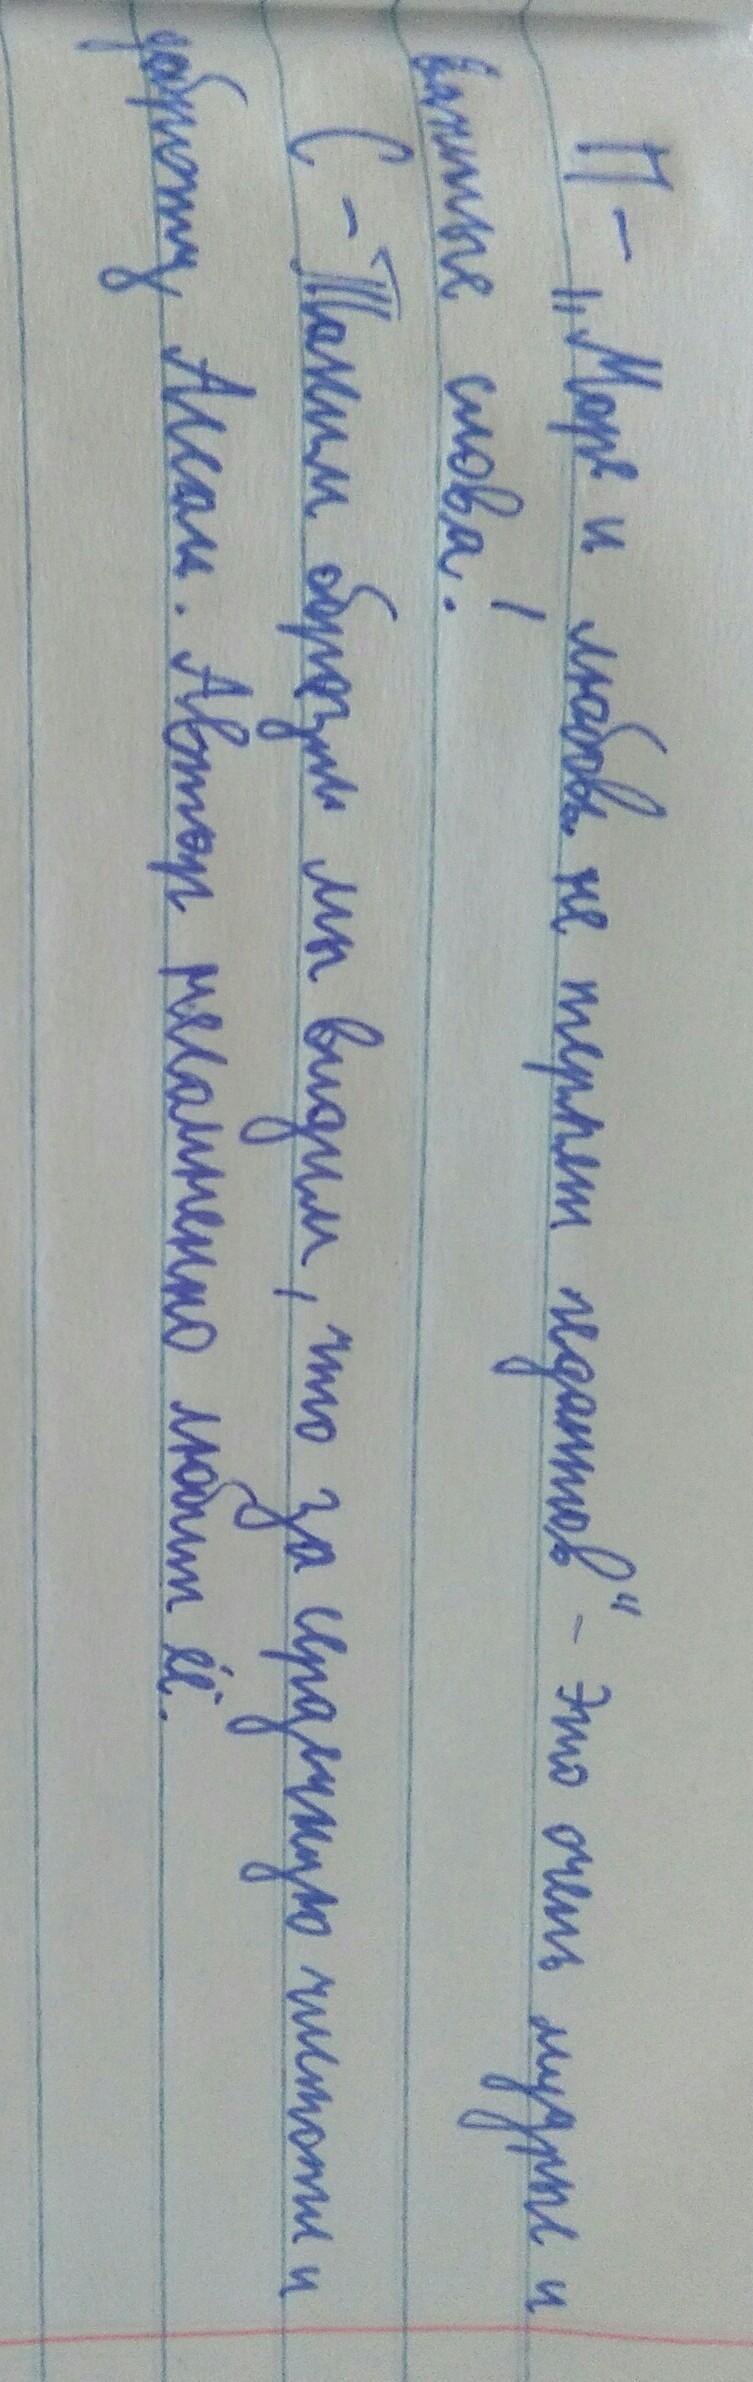 П – „Море и любовь не терпят педантов“ – это очень мудрые и
важные слова!
С – Таким образом мы видим, что за сердечную чистоту и
доброту Ассоль. Автор желанно любит её.